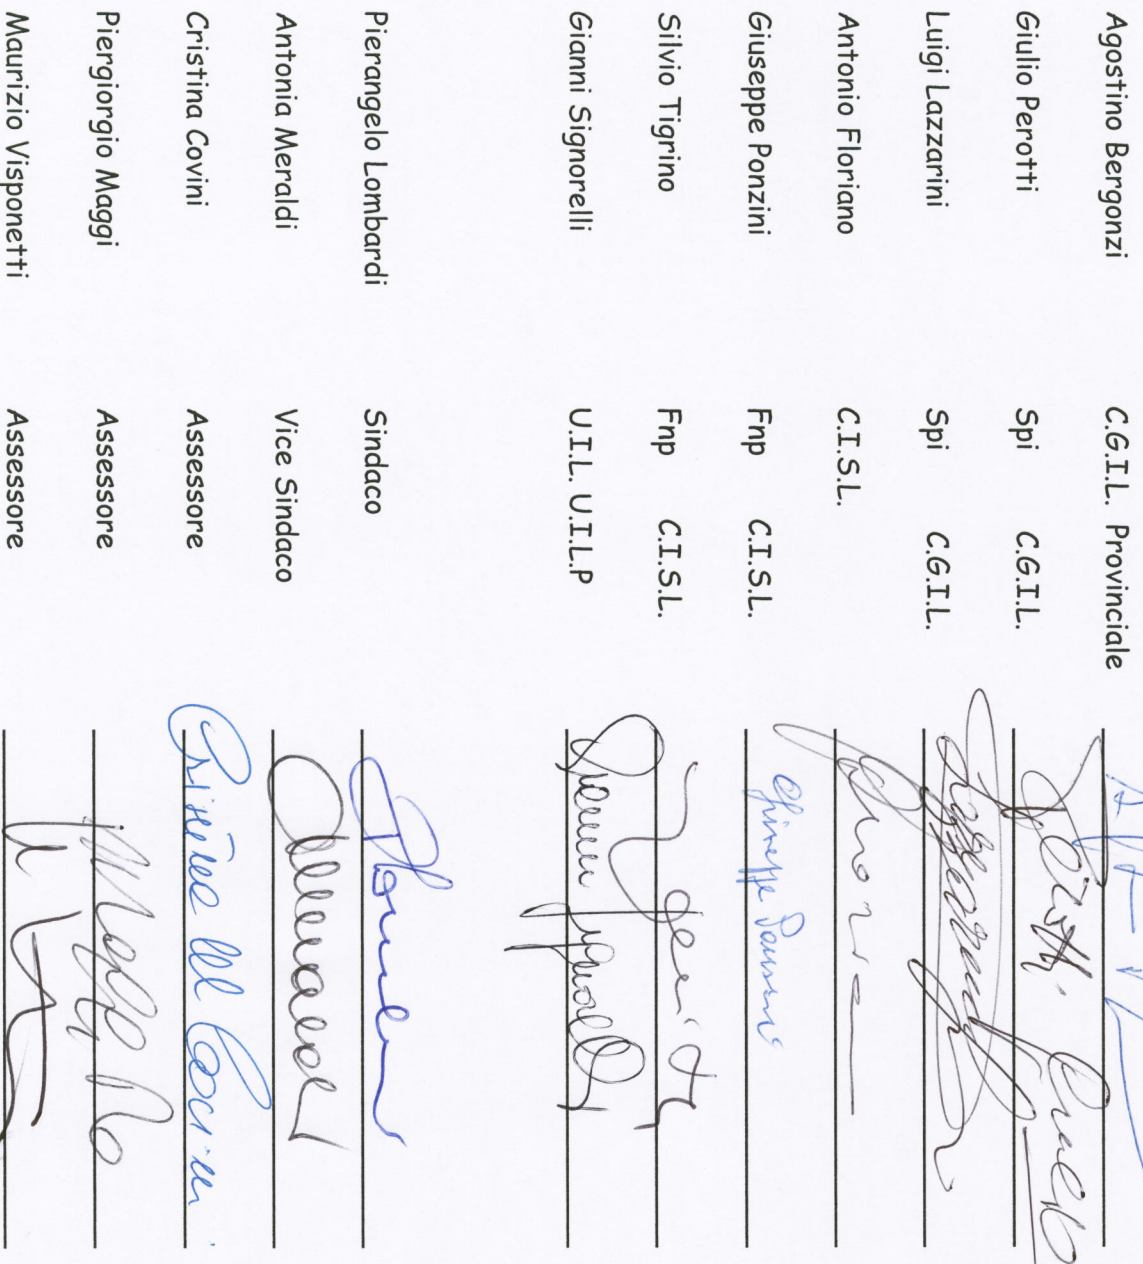 Agostino Bergonzi C.G.I.L. Provinciale
Giulio Perotti Spi C.G.I.L.
Luigi Lazzarini Spi C.G.I.L.
Antonio Floriano C.I.S.L.
Giuseppe Ponzini Fnp C.I.S.L.
Silvio Tigrino Fnp C.I.S.L.
Gianni Signorelli U.I.L. U.I.L.P
Pierangelo Lombardi Sindaco
Antonia Meraldi Vice Sindaco
Cristina Covini Assessore
Piergiorgio Maggi Assessore
Maurizio Visponetti Assessore